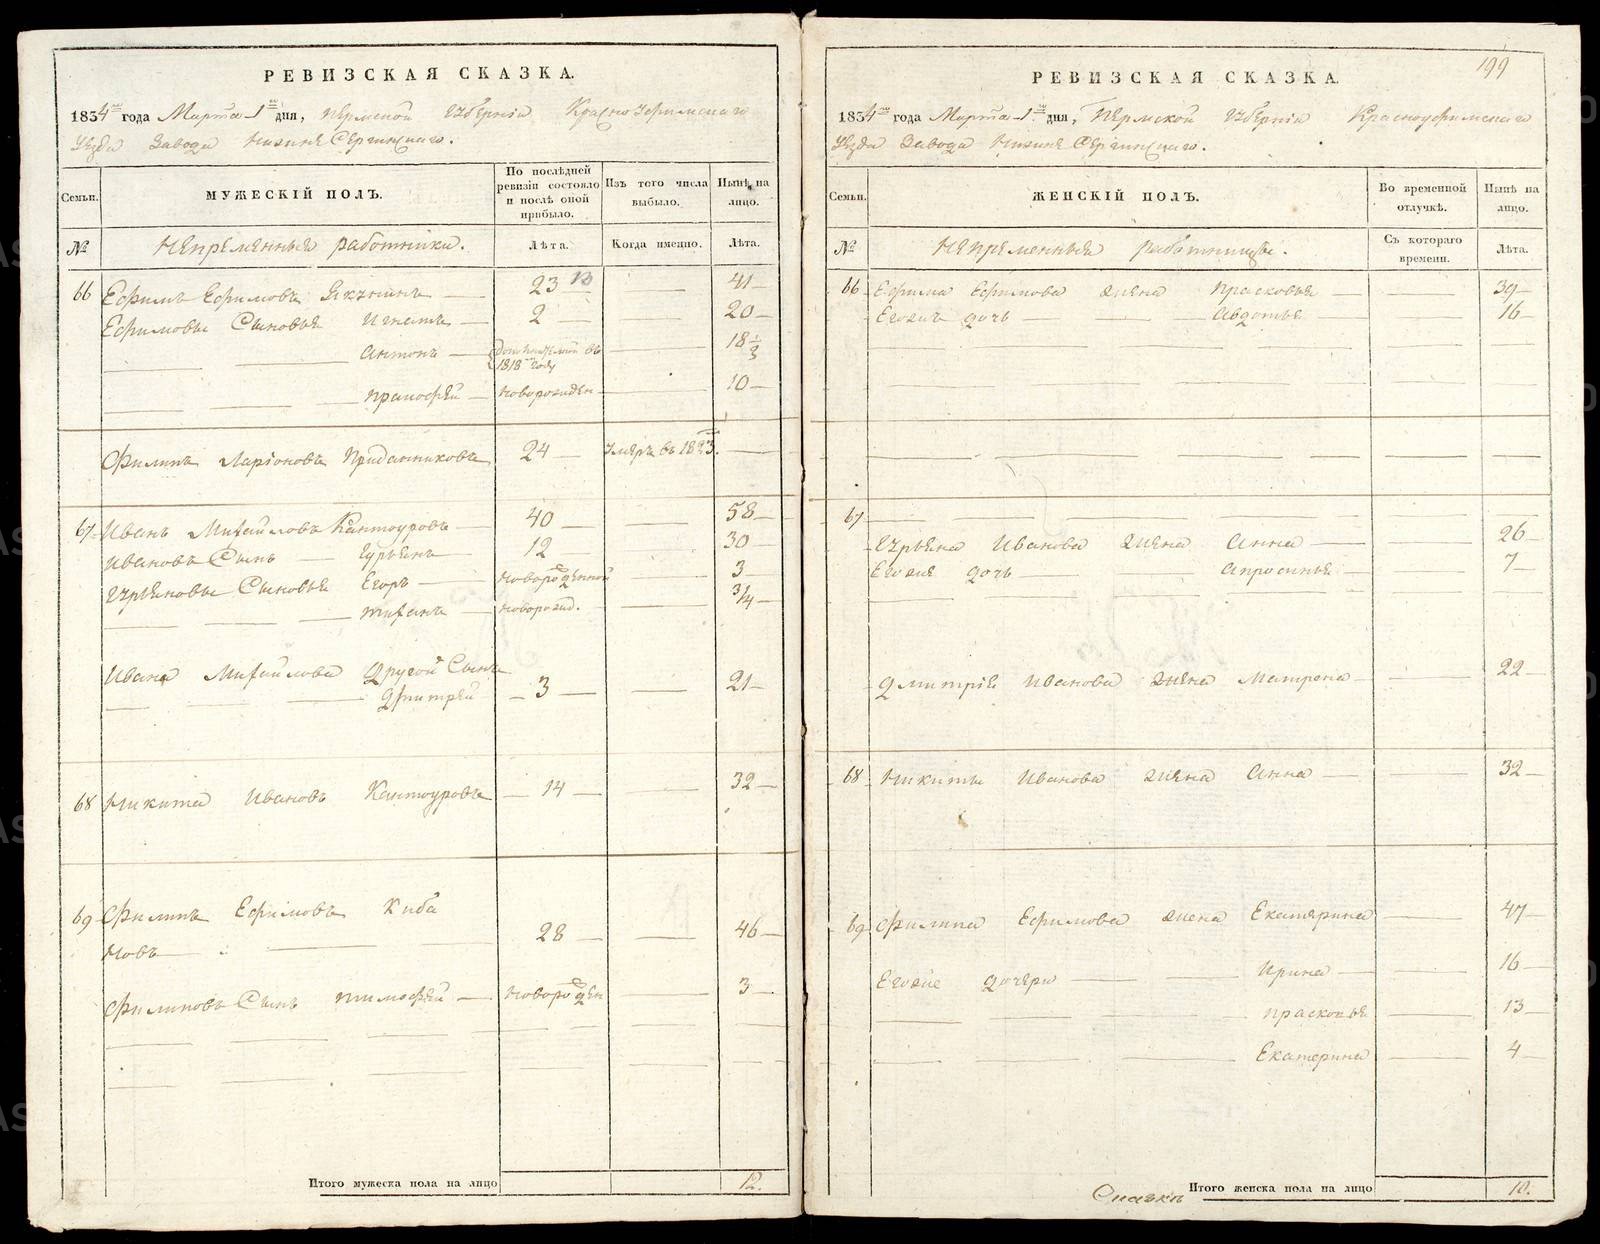 РЕВИЗСКАЯ СКАЗКА.
1834 года Марта 1 дня, Пермской Губерніи Красноуфимскаго
Уезда Завода Нижне Сергинскаго.
Семьи. МУЖЕСКІЙ ПОЛЪ. По послѣдней ревизіи состояло и послѣ оной прибыло. Изъ того числа выбыло. Нынѣ на лицо.
№ Непременныя работники. Лѣта. Когда именно. Лѣта.
66 Ефимъ Ефимовъ 23 41
Ефимовы Сыновья Игнатъ 2 20
Антонъ 1818 году 18
Прокофей новорожден 10
Филипъ Ларіоновъ Придатниковъ 24 Умеръ въ 1823.
67 Иванъ Михайловъ Кантоуровъ 40 58
Ивановъ Сынъ Гурьянъ 12 30
Гурьяновы Сыновья Егоръ новорожденной 3
Тихонъ новорожд. 3/4
Ивана Михайлова другой Сынъ
Дмитрей 3 21
68 Никита Ивановъ Кантоуровъ 14 32
69 Филипъ Ефимовъ Киба
новъ 28 46
Филиповъ Сынъ Тимофей новорожден 3
Итого мужеска пола на лицо 12.
199
РЕВИЗСКАЯ СКАЗКА.
1834 года Марта 1 дня, Пермской Губерніи Красноуфимскаго
Уезда Завода Нижне Сергинскаго.
Семьи. ЖЕНСКІЙ ПОЛЪ. Во временной отлучкѣ. Нынѣ на лицо.
№ Непременныя работницы. Съ котораго времени. Лѣта.
66 Ефима Ефимова жена Прасковья 39
Егожъ дочь Авдотья 16
67
Гурьяна Иванова жена Анна 26
Егожъ дочь Апросинья 7
Дмитрія Иванова жена Матрена 22
68 Никиты Иванова жена Анна 32
69 Филипа Ефимова жена Екатерина 47
Егоже дочери Ирина 16
Прасковья 13
Екатерина 4
Сказкъ Итого женска пола на лицо 10.